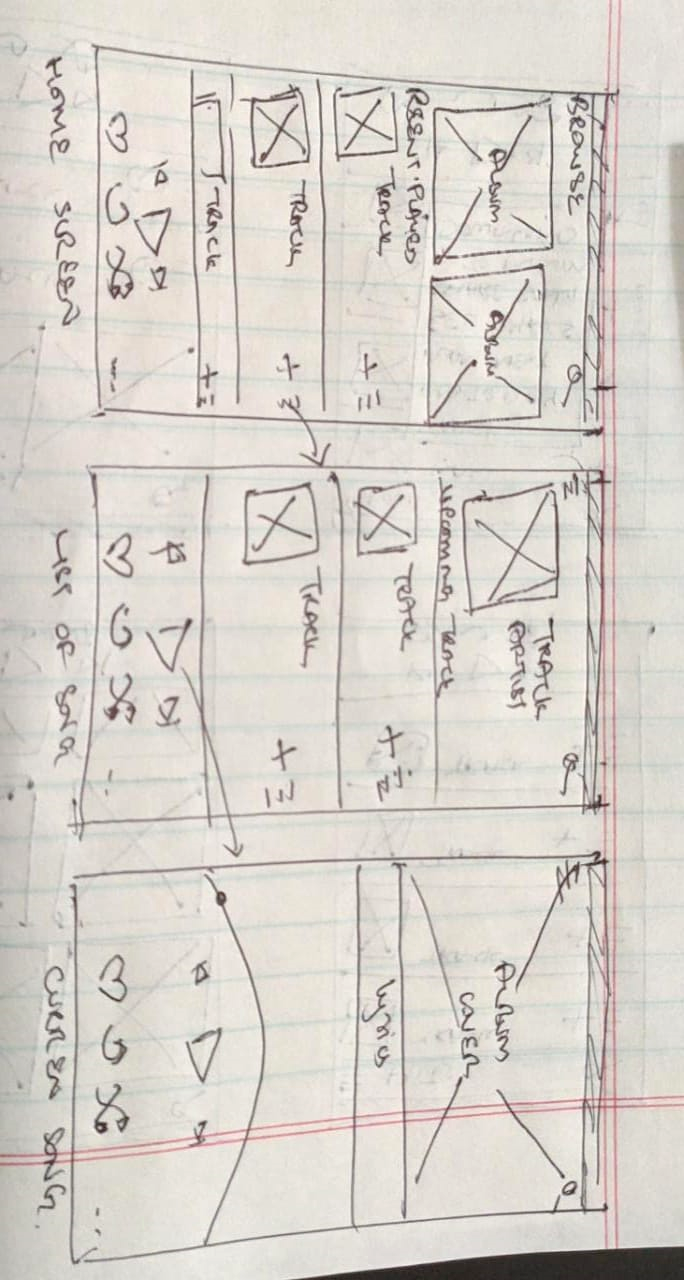 BROWSE
ALBUM
ALBUM
RECENT PLAYED
TRACK
TRACK
TRACK
HOME SCREEN
TRACK
ARTIST
UPCOMMING TRACK
TRACK
TRACK
LIST OF SONG
ALBUM
COVER
Lyrics
CURREN SONG.